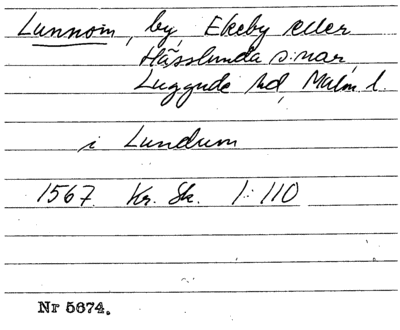 Lunnom, by, Ekeby eller
Hässlunda s:nar,
Luggude hd, Malm. l.
i Lundum
1567. Kr. Sk. 1:110
Nr 5674.